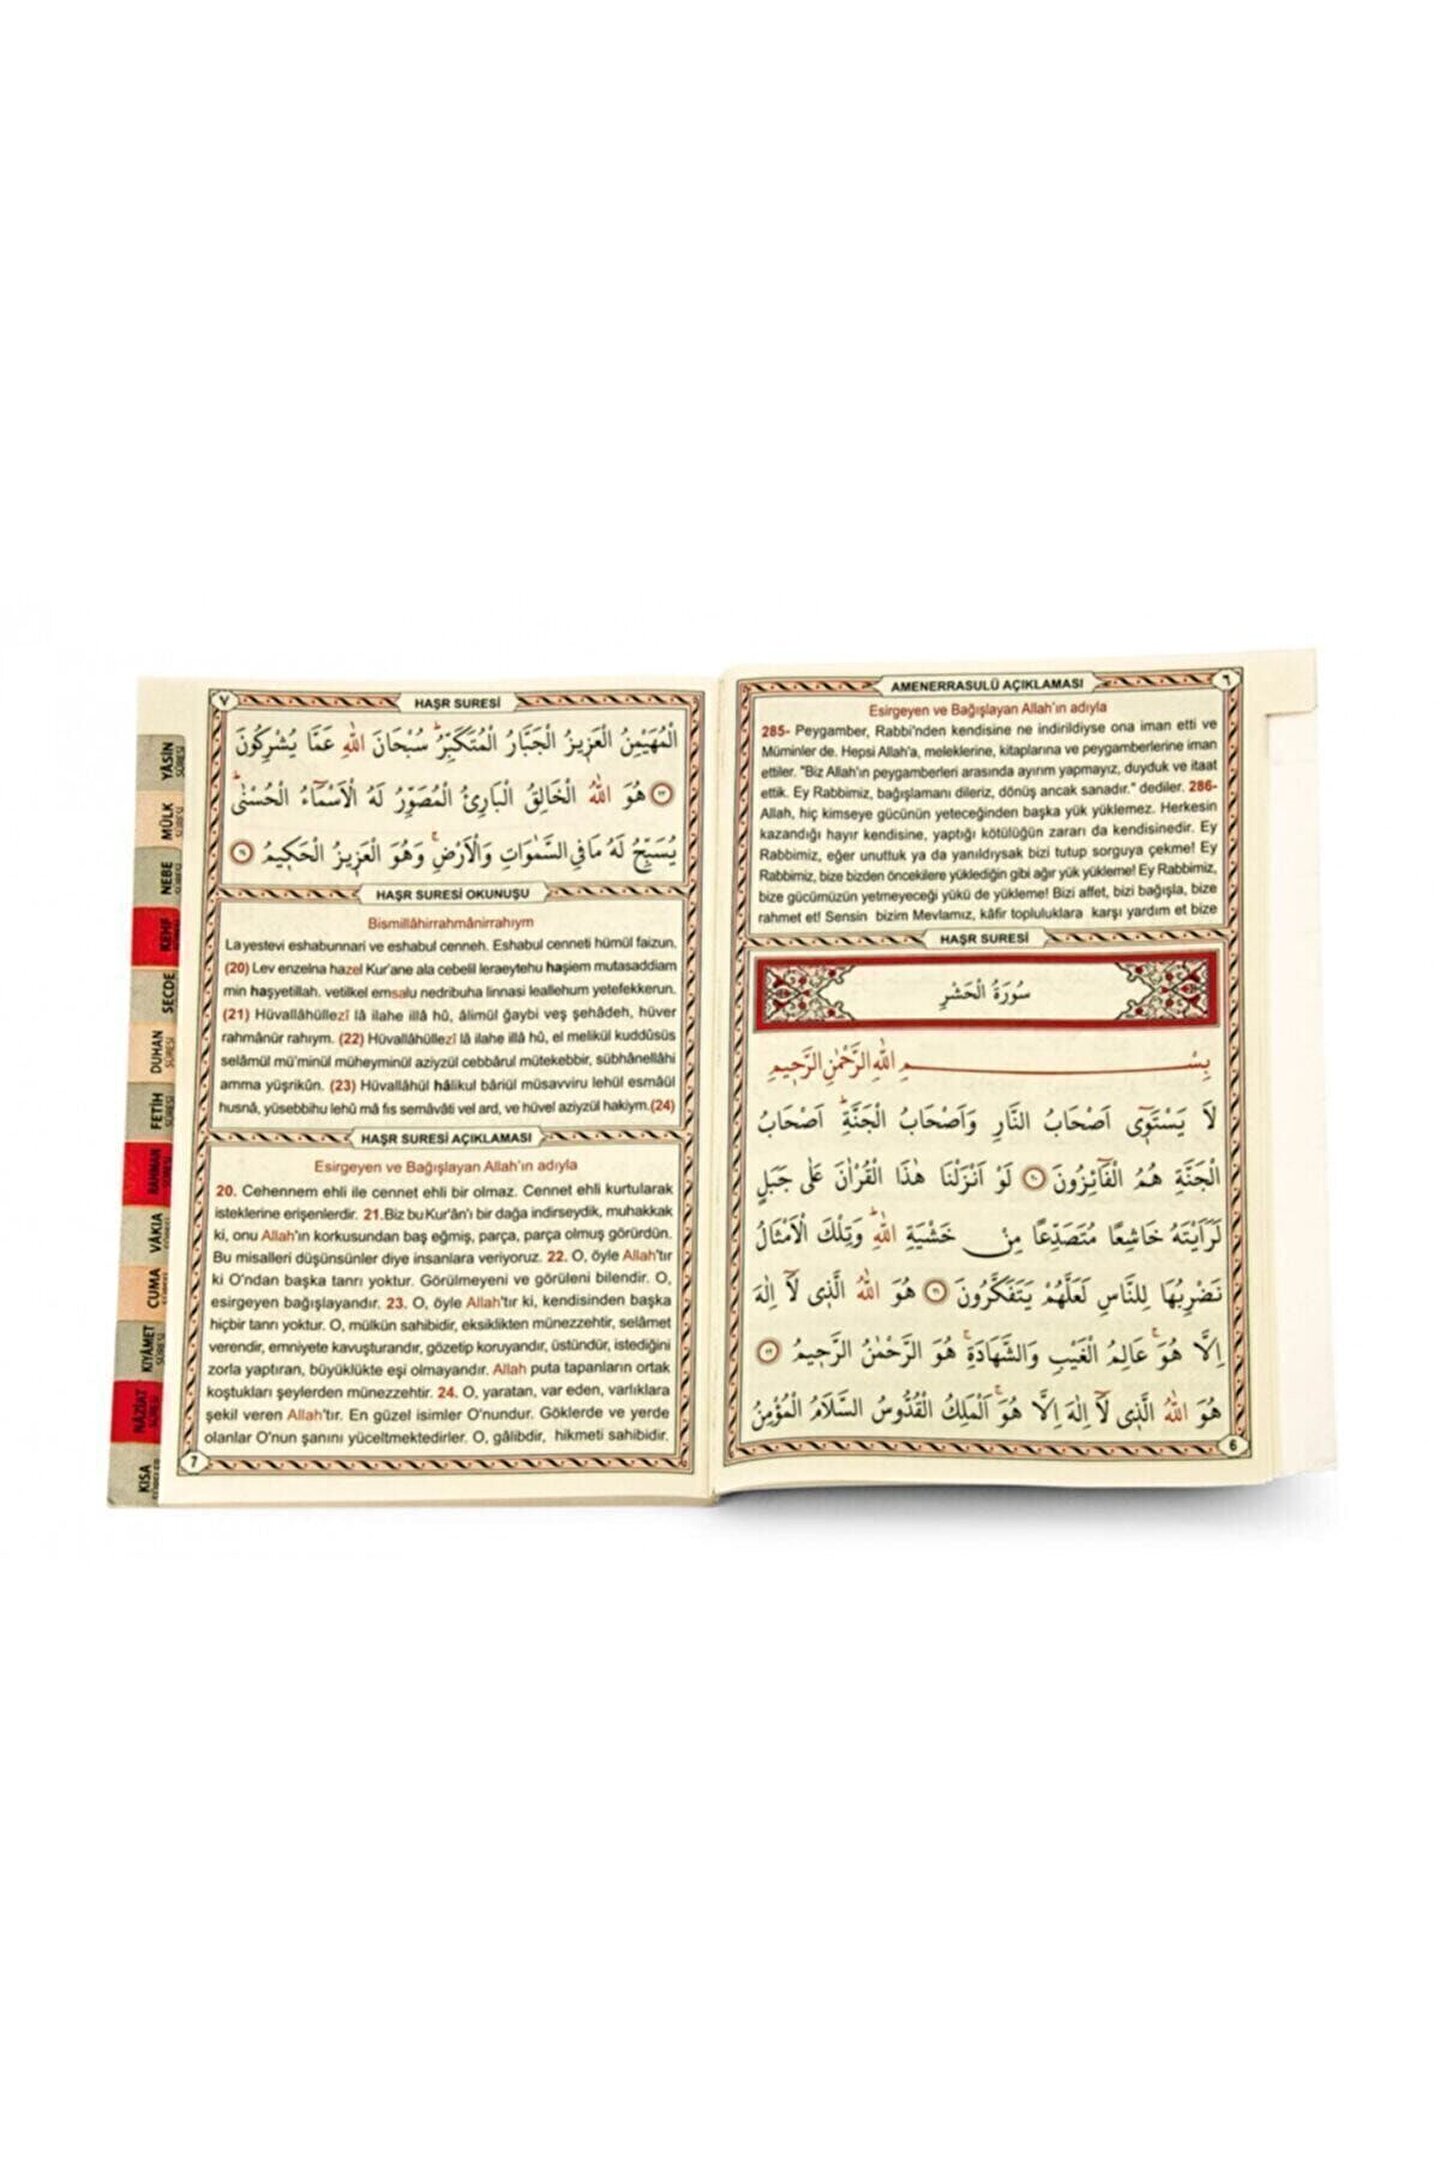 AMENERRASULÜ AÇIKLAMASI
٦
Esirgeyen ve Bağışlayan Allah'ın adıyla
285- Peygamber, Rabbi'nden kendisine ne indirildiyse ona iman etti ve
Müminler de. Hepsi Allah'a, meleklerine, kitaplarına ve peygamberlerine iman
ettiler. "Biz Allah'ın peygamberleri arasında ayırım yapmayız, duyduk ve itaat
ettik. Ey Rabbimiz, bağışlamanı dileriz, dönüş ancak sanadır." dediler. 286-
Allah, hiç kimseye gücünün yeteceğinden başka yük yüklemez. Herkesin
kazandığı hayır kendisine, yaptığı kötülüğün zararı da kendisinedir. Ey
Rabbimiz, eğer unuttuk ya da yanıldıysak bizi tutup sorguya çekme! Ey
Rabbimiz, bize bizden öncekilere yüklediğin gibi ağır yük yükleme! Ey Rabbimiz,
bize gücümüzün yetmeyeceği yükü de yükleme! Bizi affet, bizi bağışla, bize
rahmet et! Sensin bizim Mevlamız, kâfir topluluklara karşı yardım et bize
HAŞR SURESİ
سُورَةُ الْحَشْرِ
بِسْمِ اللهِ الرَّحْمٰنِ الرَّحٖيمِ
لَا يَسْتَوٖٓى اَصْحَابُ النَّارِ وَاَصْحَابُ الْجَنَّةِ اَصْحَابُ
الْجَنَّةِ هُمُ الْفَٓائِزُونَ ﴿٢٠﴾ لَوْ اَنْزَلْنَا هٰذَا الْقُرْاٰنَ عَلٰى جَبَلٍ
لَرَاَيْتَهُ خَاشِعًا مُتَصَدِّعًا مِنْ خَشْيَةِ اللهِ وَتِلْكَ الْاَمْثَالُ
نَضْرِبُهَا لِلنَّاسِ لَعَلَّهُمْ يَتَفَكَّرُونَ ﴿٢١﴾ هُوَ اللهُ الَّذٖى لَٓا اِلٰهَ
اِلَّا هُوَ عَالِمُ الْغَيْبِ وَالشَّهَادَةِ هُوَ الرَّحْمٰنُ الرَّحٖيمُ ﴿٢٢﴾
هُوَ اللهُ الَّذٖى لَٓا اِلٰهَ اِلَّا هُوَ اَلْمَلِكُ الْقُدُّوسُ السَّلَامُ الْمُؤْمِنُ
6
٧
HAŞR SURESİ
الْمُهَيْمِنُ الْعَزٖيزُ الْجَبَّارُ الْمُتَكَبِّرُ سُبْحَانَ اللهِ عَمَّا يُشْرِكُونَ
﴿٢٣﴾ هُوَ اللهُ الْخَالِقُ الْبَارِئُ الْمُصَوِّرُ لَهُ الْاَسْمَٓاءُ الْحُسْنٰى
يُسَبِّحُ لَهُ مَا فِى السَّمٰوَاتِ وَالْاَرْضِ وَهُوَ الْعَزٖيزُ الْحَكٖيمُ
HAŞR SURESİ OKUNUŞU
Bismillâhirrahmânirrahıym
La yestevi eshabunnari ve eshabul cenneh. Eshabul cenneti hümül faizun.
(20) Lev enzelna hazel Kur'ane ala cebelil leraeytehu haşiem mutasaddiam
min haşyetillah. vetilkel emsalu nedribuha linnasi leallehum yetefekkerun.
(21) Hüvallâhüllezî lâ ilahe illâ hû, âlimül ğaybi veş şehâdeh, hüver
rahmânür rahıym. (22) Hüvallâhüllezî lâ ilahe illâ hû, el melikül kuddûsüs
selâmül mü'minül müheyminül aziyzül cebbârul mütekebbir, sübhânellâhi
amma yüşrikûn. (23) Hüvallâhül hâlikul bâriül müsavviru lehül esmâül
husnâ, yüsebbihu lehû mâ fıs semâvâti vel ard, ve hüvel aziyzül hakiym.(24)
HAŞR SURESİ AÇIKLAMASI
Esirgeyen ve Bağışlayan Allah'ın adıyla
20. Cehennem ehli ile cennet ehli bir olmaz. Cennet ehli kurtularak
isteklerine erişenlerdir. 21.Biz bu Kur'ân'ı bir dağa indirseydik, muhakkak
ki, onu Allah'ın korkusundan baş eğmiş, parça, parça olmuş görürdün.
Bu misalleri düşünsünler diye insanlara veriyoruz. 22. O, öyle Allah'tır
ki O'ndan başka tanrı yoktur. Görülmeyeni ve görüleni bilendir. O,
esirgeyen bağışlayandır. 23. O, öyle Allah'tır ki, kendisinden başka
hiçbir tanrı yoktur. O, mülkün sahibidir, eksiklikten münezzehtir, selâmet
verendir, emniyete kavuşturandır, gözetip koruyandır, üstündür, istediğini
zorla yaptıran, büyüklükte eşi olmayandır. Allah puta tapanların ortak
koştukları şeylerden münezzehtir. 24. O, yaratan, var eden, varlıklara
şekil veren Allah'tır. En güzel isimler O'nundur. Göklerde ve yerde
olanlar O'nun şanını yüceltmektedirler. O, gâlibdir, hikmeti sahibidir.
7
YÂSİN
SÛRESİ
MÜLK
SÛRESİ
NEBE
KEHF
SECDE
DUHAN
SÛRESİ
FETİH
SÛRESİ
RAHMAN
SÛRESİ
VÂKIA
CUMA
KIYÂMET
SÛRESİ
NÂZİÂT
KISA